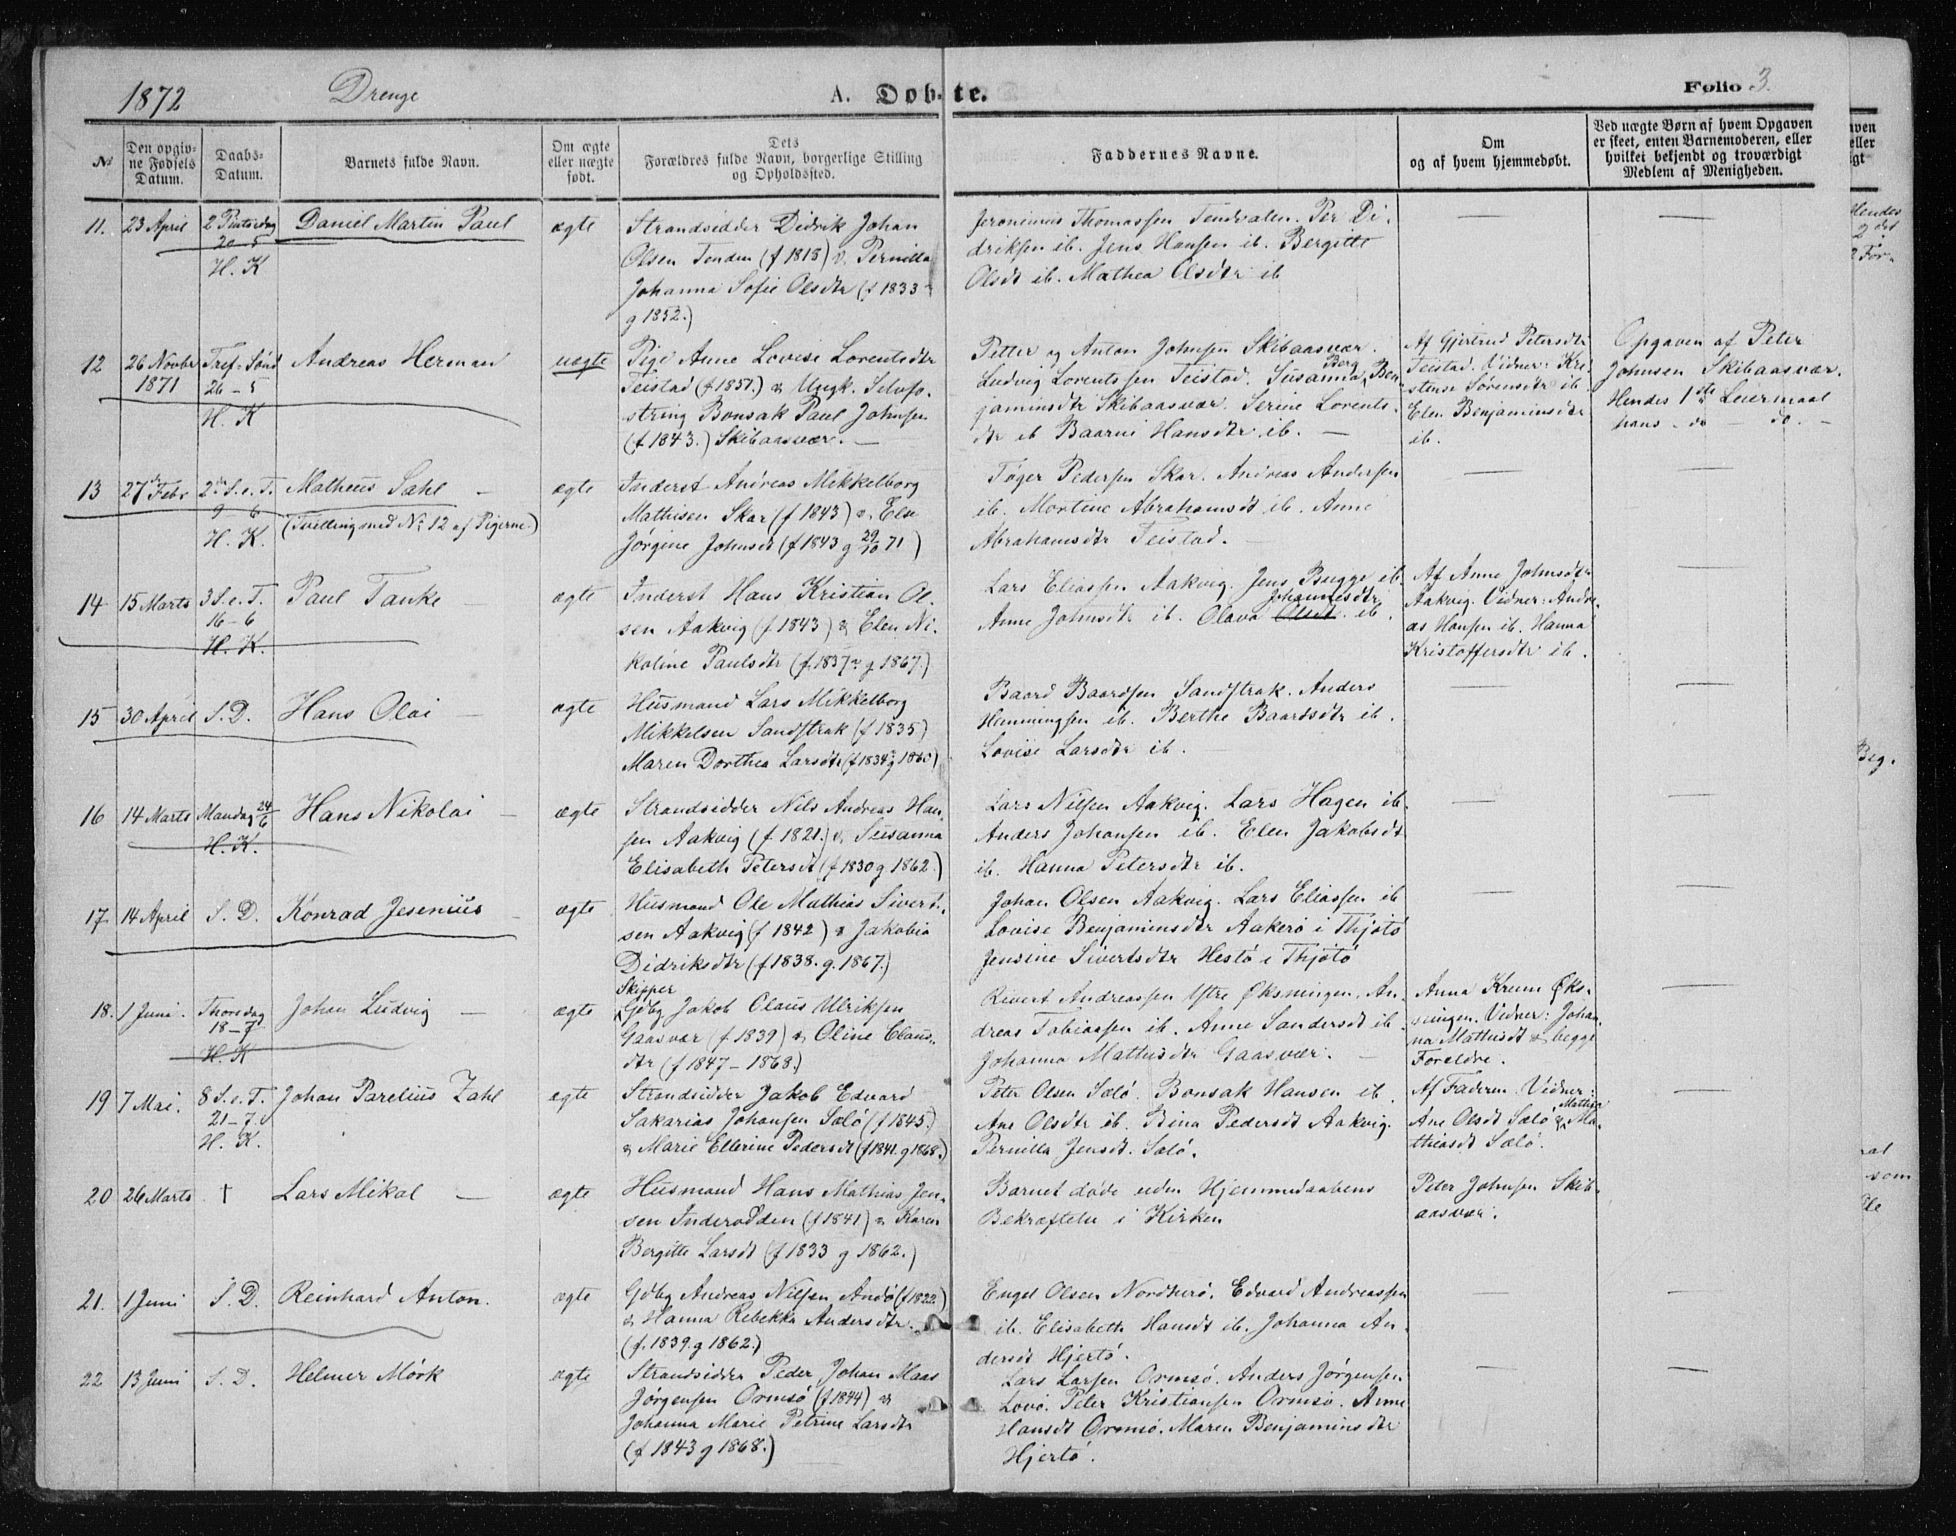 1872 Drenge A. Døbte. Folio 3.
No
Den opgivne Fødsels Datum.
Daabs-Datum.
Barnets fulde Navn.
Om ægte eller uægte født.
Dets Forældres fulde Navn, borgerlige Stilling og Opholdssted.
Faddernes Navne.
Om og af hvem hjemmedøbt.
Ved uægte Børn af hvem Opgaven er skeet, enten Barnemoderen, eller hvilket bekjendt og troværdigt Medlem af Menigheden.
11. 23 April 2 Pintsedag 20-5 H. K
Daniel Martin Paul
ægte
Strandsidder Didrik Johan
Olsen Tenden (f 1818) & Pernilla
Johanna Sofie Olsdtr (f 1833
g 1852.)
Jeronimus Thomassen Tendvalen. Per Di-
driksen ib. Jens Hansen ib. Bergitte
Olsdt ib. Mathea Olsdtr ib
12 26 Novbr 1871 Tref. Sønd 26-5 H. K
Andreas Herman
uægte
Pige Anne Lovise Lorentsdtr
Teistad (f 1851.) & Ungk. Selvfo-
string Bonsak Paul Johnsen
(f 1843.) Skibaasvær. —
Petter og Anton Johnsen Skibaasvær.
Ludvig Lorentssen Teistad. Susanna Berg Ben-
jaminsdtr Skibaasvær. Serine Lorents-
dtr ib Baarni Hansdtr ib. —
Af Gjertrud Petersdtr
Teistad. Vidner: Kri-
stense Sørensdtr ib.
Elen Benjaminsdtr
ib.
Opgaven af Peter
Johnsen Skibaasvær.
Hendes 1ste Leiermaal
hans do — do. —
13 27de Febr 2den S. e. T. 9-6 H. K.
Matheus Sahl —
(Tvilling med No 12 af Pigerne)
ægte
Inderst Andreas Mikkelborg
Mathisen Skar (f 1843) & Else
Jørgine Johnsdt (f 1843 g 29/10 71)
Tøger Pedersen Skar. Andreas Andersen
ib. Mortine Abrahamsdt ib. Anne
Abrahamsdtr Teistad.
14 15 Marts 3 S. e. T. 16-6 H. K.
Paul Tanke —
ægte
Inderst Hans Kristian Ol-
sen Aakvig (f 1843) & Elen Ni-
koline Paulsdtr (f. 1837 g 1867.)
Lars Eliassen Aakvig. Jens Bugge ib.
Anne Johnsdtr ib. Olava Olsdt Johannesdtr ib.
Af Anne Johnsdtr
Aakvig. Vidner: Andre-
as Hansen ib. Hanna
Kristoffersdtr ib.
15 30 April S. D.
Hans Olai —
ægte
Husmand Lars Mikkelborg
Mikkelsen Sandstrak (f 1835)
Maren Dorthea Larsdtr (f 1834 g 1860)
Baard Baardsen Sandstrak. Anders
Hemmingsen ib. Berthe Baardsdtr ib.
Lovise Larsdtr ib.
16 14 Marts Mandag 24/6 H. K.
Hans Nikolai —
ægte
Strandsidder Nils Andreas Han-
sen Aakvig (f. 1821.) & Susanna
Elisabeth Petersdt (f 1830 g 1862.)
Lars Nilsen Aakvig. Lars Hagen ib.
Anders Johansen ib. Elen Jakobsdt
ib. Hanna Petersdtr ib.
17. 14 April S. D.
Konrad Jesenius —
ægte
Husmand Ole Mathias Sivert-
sen Aakvig (f 1842) & Jakobia
Didriksdtr (f 1838. g. 1867.)
Johan Olsen Aakvig. Lars Eliassen ib
Lovise Benjaminsdtr Aakerø i Thjøtø
Jensine Sivertsdtr Hestø i Thjøtø
18. 1 Juni. Thorsdag 18-7 H. K
Johan Ludvig —
ægte
Skipper
Gdbg Jakob Olaus Ulriksen
Gaasvær (f 1839) & Oline Claus-
dtr (f 1847 - 1868.)
Rivert Andreassen Ytre Øksningen. An-
dreas Tobiassen ib. Anne Sandersdt ib
Johanna Mathisdtr Gaasvær. —
Anna Krum Øks-
ningen. Vidner: Johan-
na Mathisdt & begge
Foreldre.
19 7 Mai. 8 S. e. T. 21-7. H. K.
Johan Parelius Zahl
ægte
Strandsidder Jakob Edvard
Sakarias Johansen Sølø (f 1845.)
& Marie Ellerine Pedersdt (f 1841. g 1868.)
Peter Olsen Sølø. Bonsak Hansen ib.
Ane Olsdtr ib. Stina Pedersdt Aakvig.
Pernilla Jensdt. Sølø.
Af Faderen. Vidner:
Ane Olsdt Sølø & Mathea Ma-
thiasdt Sølø.
20 26 Marts †
Lars Mikal —
ægte
Husmand Hans Mathias Jen-
sen Inderodden (f 1841) & Karen
Bergitte Larsdt (f 1833 g 1862.)
Barnet døde uden Hjemmedaabens
Bekræftelse i Kirken
Peter Johnsen Skib-
aasvær.
21. 1 Juni S. D.
Reinhard Anton.
ægte
Gdbg Andreas Nilsen Andø (f 1822.)
& Hanna Rebekka Andersdtr.
(f. 1839. g 1862.)
Engel Olsen Nordherø. Edvard Andreassen
ib. Elisabeth Hansdt ib. Johanna An-
dersdt Hjertø.
22 13 Juni S. D.
Helmer Mørk
ægte
Strandsidder Peder Johan Maas
Jørgensen Ormsø (f 1844) &
Johanna Marie Petrine Larsdtr
(f 1843 g 1868.)
Lars Larsen Ormsø. Anders Jørgensen
Lovø. Peter Kristiansen Ormsø. Anne
Hansdt Ormsø. Maren Benjaminsdtr
Hjertø.